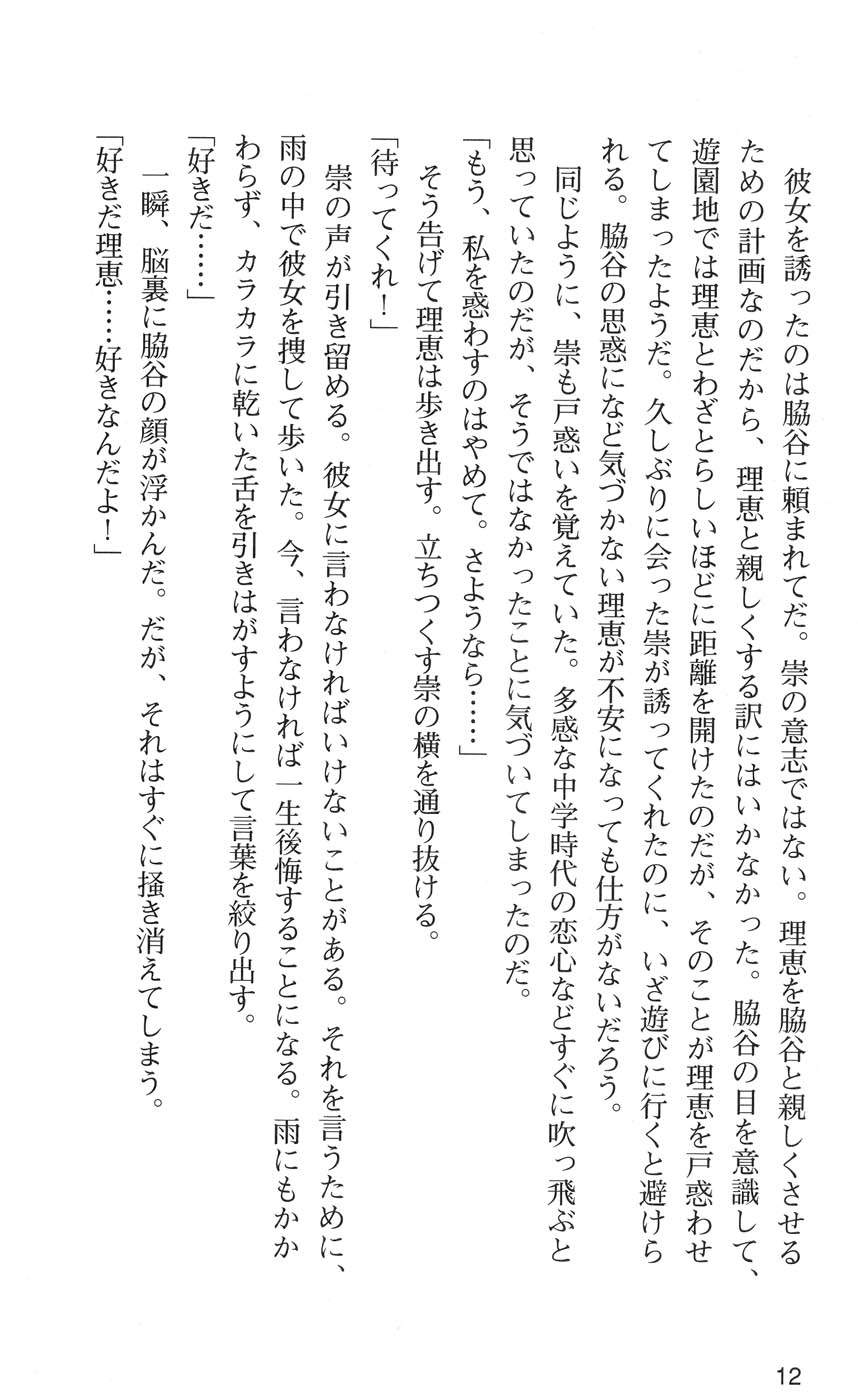 彼女を誘ったのは脇谷に頼まれてだ。崇の意志ではない。理恵を脇谷と親しくさせる
ための計画なのだから、理恵と親しくする訳にはいかなかった。脇谷の目を意識して、
遊園地では理恵とわざとらしいほどに距離を開けたのだが、そのことが理恵を戸惑わせ
てしまったようだ。久しぶりに会った崇が誘ってくれたのに、いざ遊びに行くと避けら
れる。脇谷の思惑になど気づかない理恵が不安になっても仕方がないだろう。
　同じように、崇も戸惑いを覚えていた。多感な中学時代の恋心などすぐに吹っ飛ぶと
思っていたのだが、そうではなかったことに気づいてしまったのだ。
「もう、私を惑わすのはやめて。さようなら……」
　そう告げて理恵は歩き出す。立ちつくす崇の横を通り抜ける。
「待ってくれ！」
　崇の声が引き留める。彼女に言わなければいけないことがある。それを言うために、
雨の中で彼女を捜して歩いた。今、言わなければ一生後悔することになる。雨にもかか
わらず、カラカラに乾いた舌を引きはがすようにして言葉を絞り出す。
「好きだ……」
　一瞬、脳裏に脇谷の顔が浮かんだ。だが、それはすぐに掻き消えてしまう。
「好きだ理恵……好きなんだよ！」
12